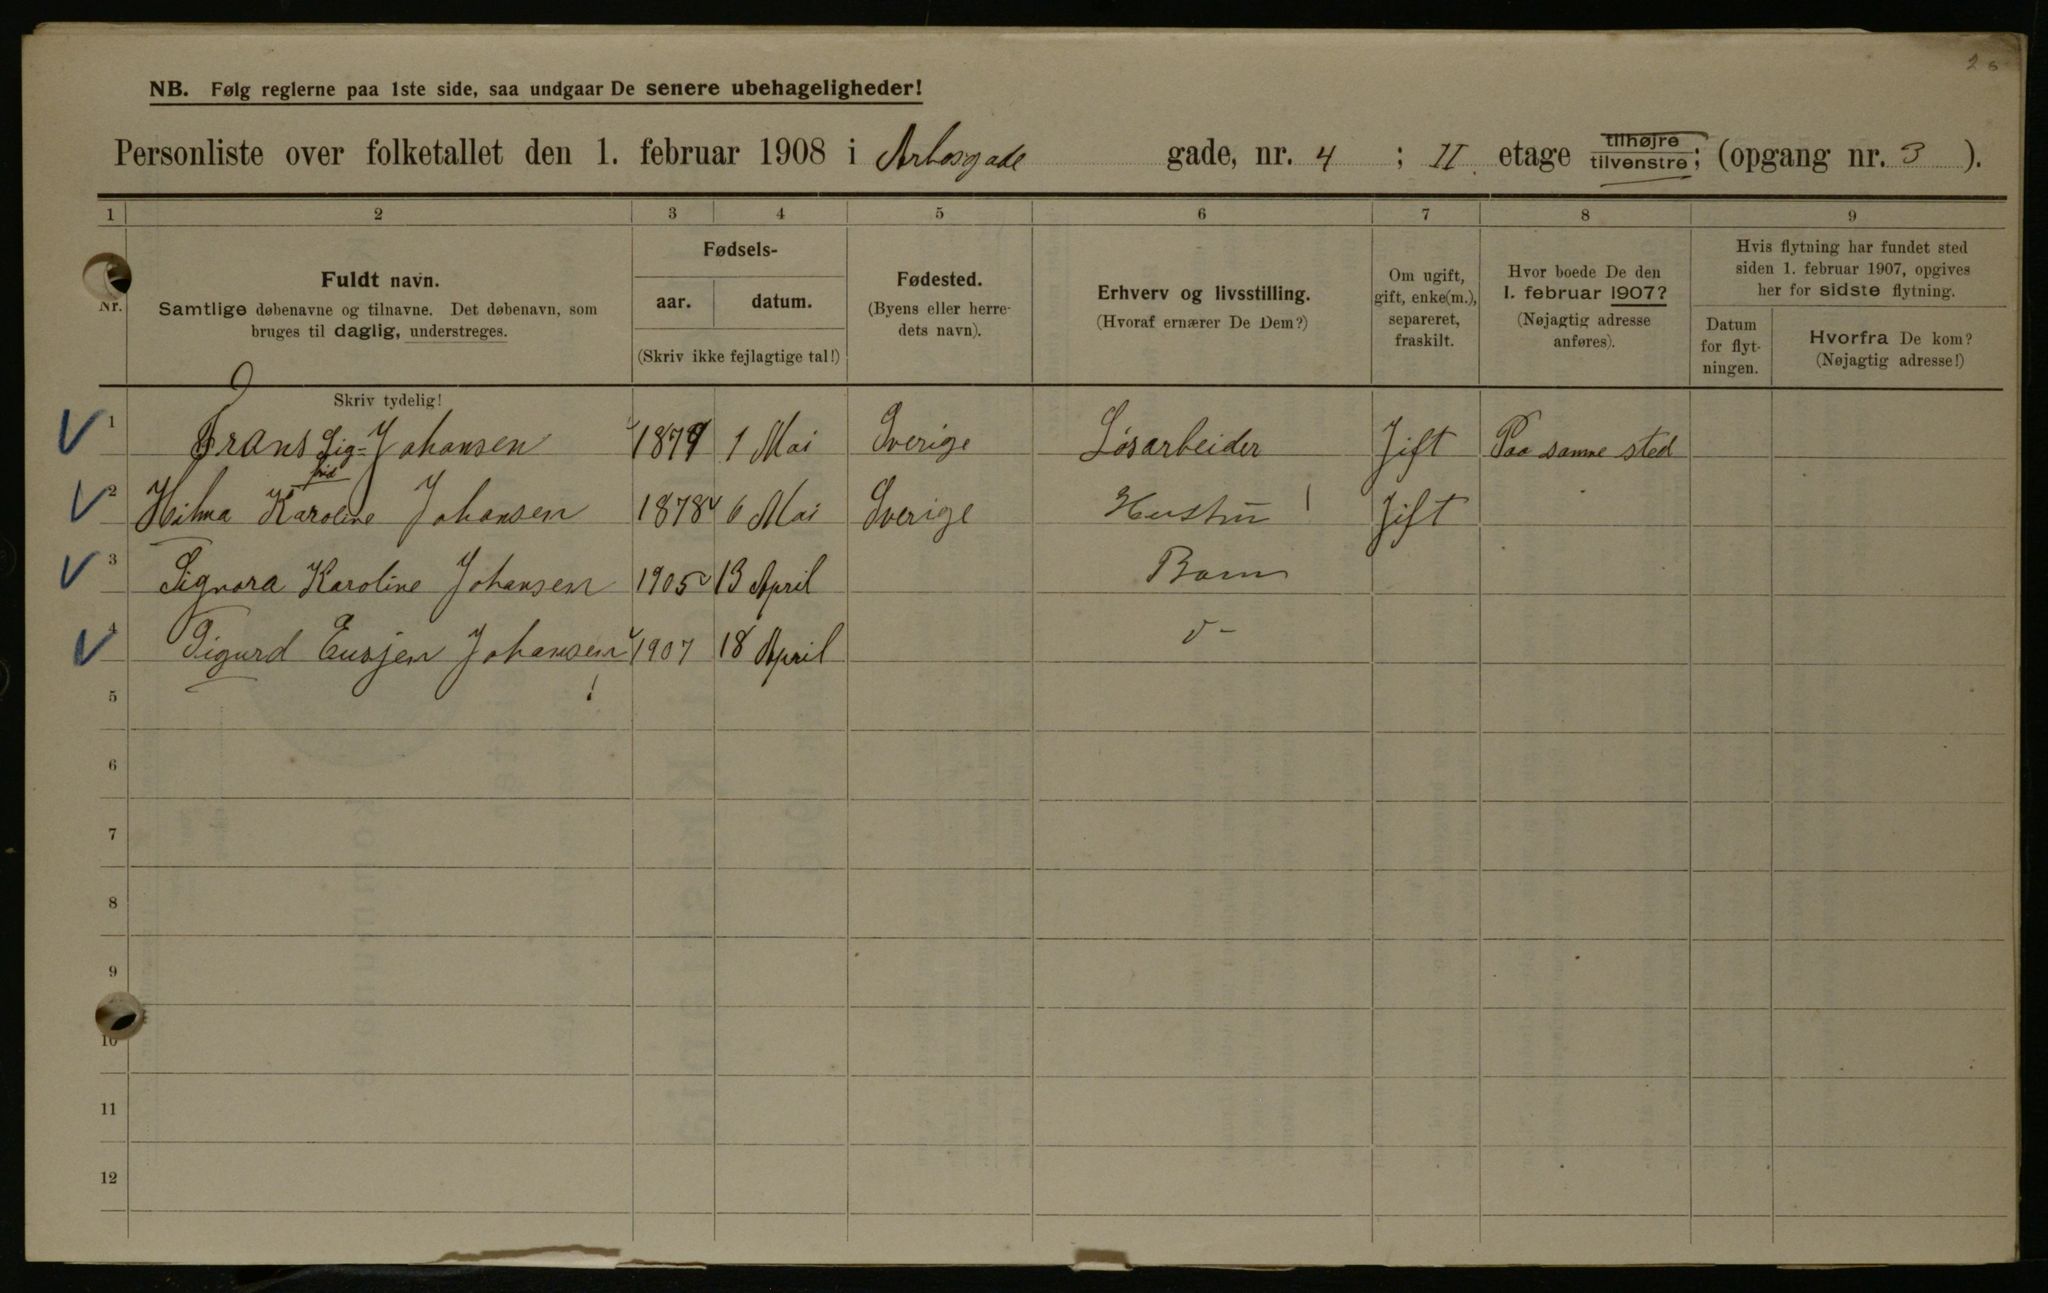 NB. Følg reglerne paa 1ste side, saa undgaar De senere ubehageligheder!
Personliste over folketallet den 1. februar 1908 i Arbosgade gade, nr. 4 ; II etage tilhøjre tilvenstre; (opgang nr. 3 ).
1 2 3 4 5 6 7 8 9
Nr.
Fuldt navn.
Samtlige døbenavne og tilnavne. Det døbenavn, som
bruges til daglig, understreges.
Fødsels-
aar. datum.
(Skriv ikke fejlagtige tal!)
Fødested.
(Byens eller herre-
dets navn).
Erhverv og livsstilling.
(Hvoraf ernærer De Dem?)
Om ugift,
gift, enke(m.),
separeret,
fraskilt.
Hvor boede De den
1. februar 1907?
(Nøjagtig adresse
anføres).
Hvis flytning har fundet sted
siden 1. februar 1907, opgives
her for sidste flytning.
Datum
for flyt-
ningen.
Hvorfra De kom?
(Nøjagtig adresse!)
Skriv tydelig!
1 Frans Sig=frid Johansen 1879 1 Mai Sverige Løsarbeider Jift Paa samme sted
2 Hilma Karoline Johansen 1878 6 Mai Sverige Hustru Jift
3 Signora Karoline Johansen 1905 13 April Barn
4 Sigurd Eusjen Johansen 1907 18 April
5
6
7
8
9
10
11
12